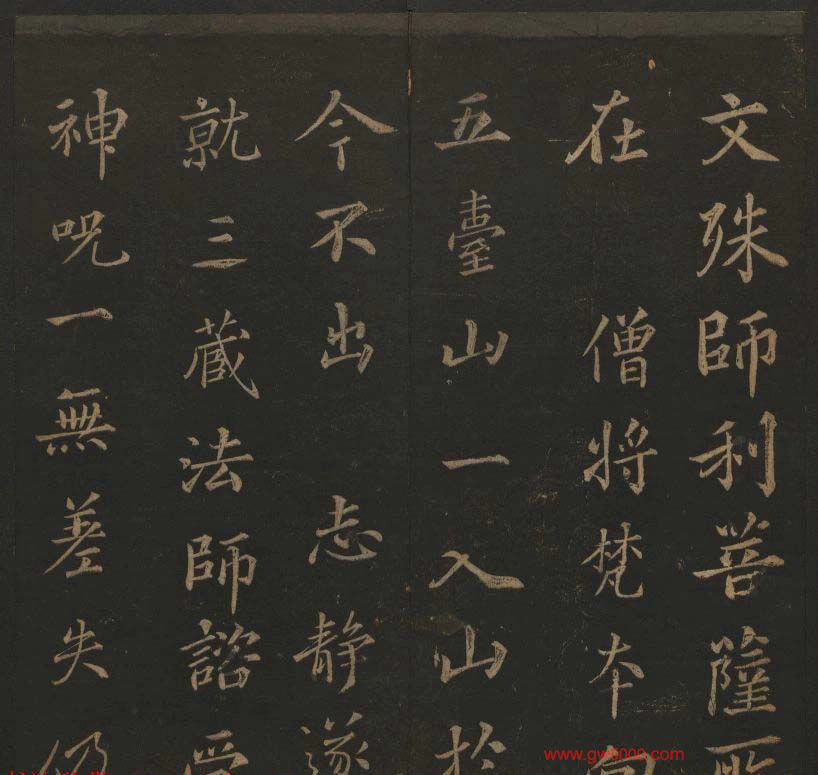 文殊師利菩薩所
在 僧將梵本向
五臺山一入山於
今不出 志静遂
就三藏法師諮受
神呪一無差失仍
www.gw5000.com